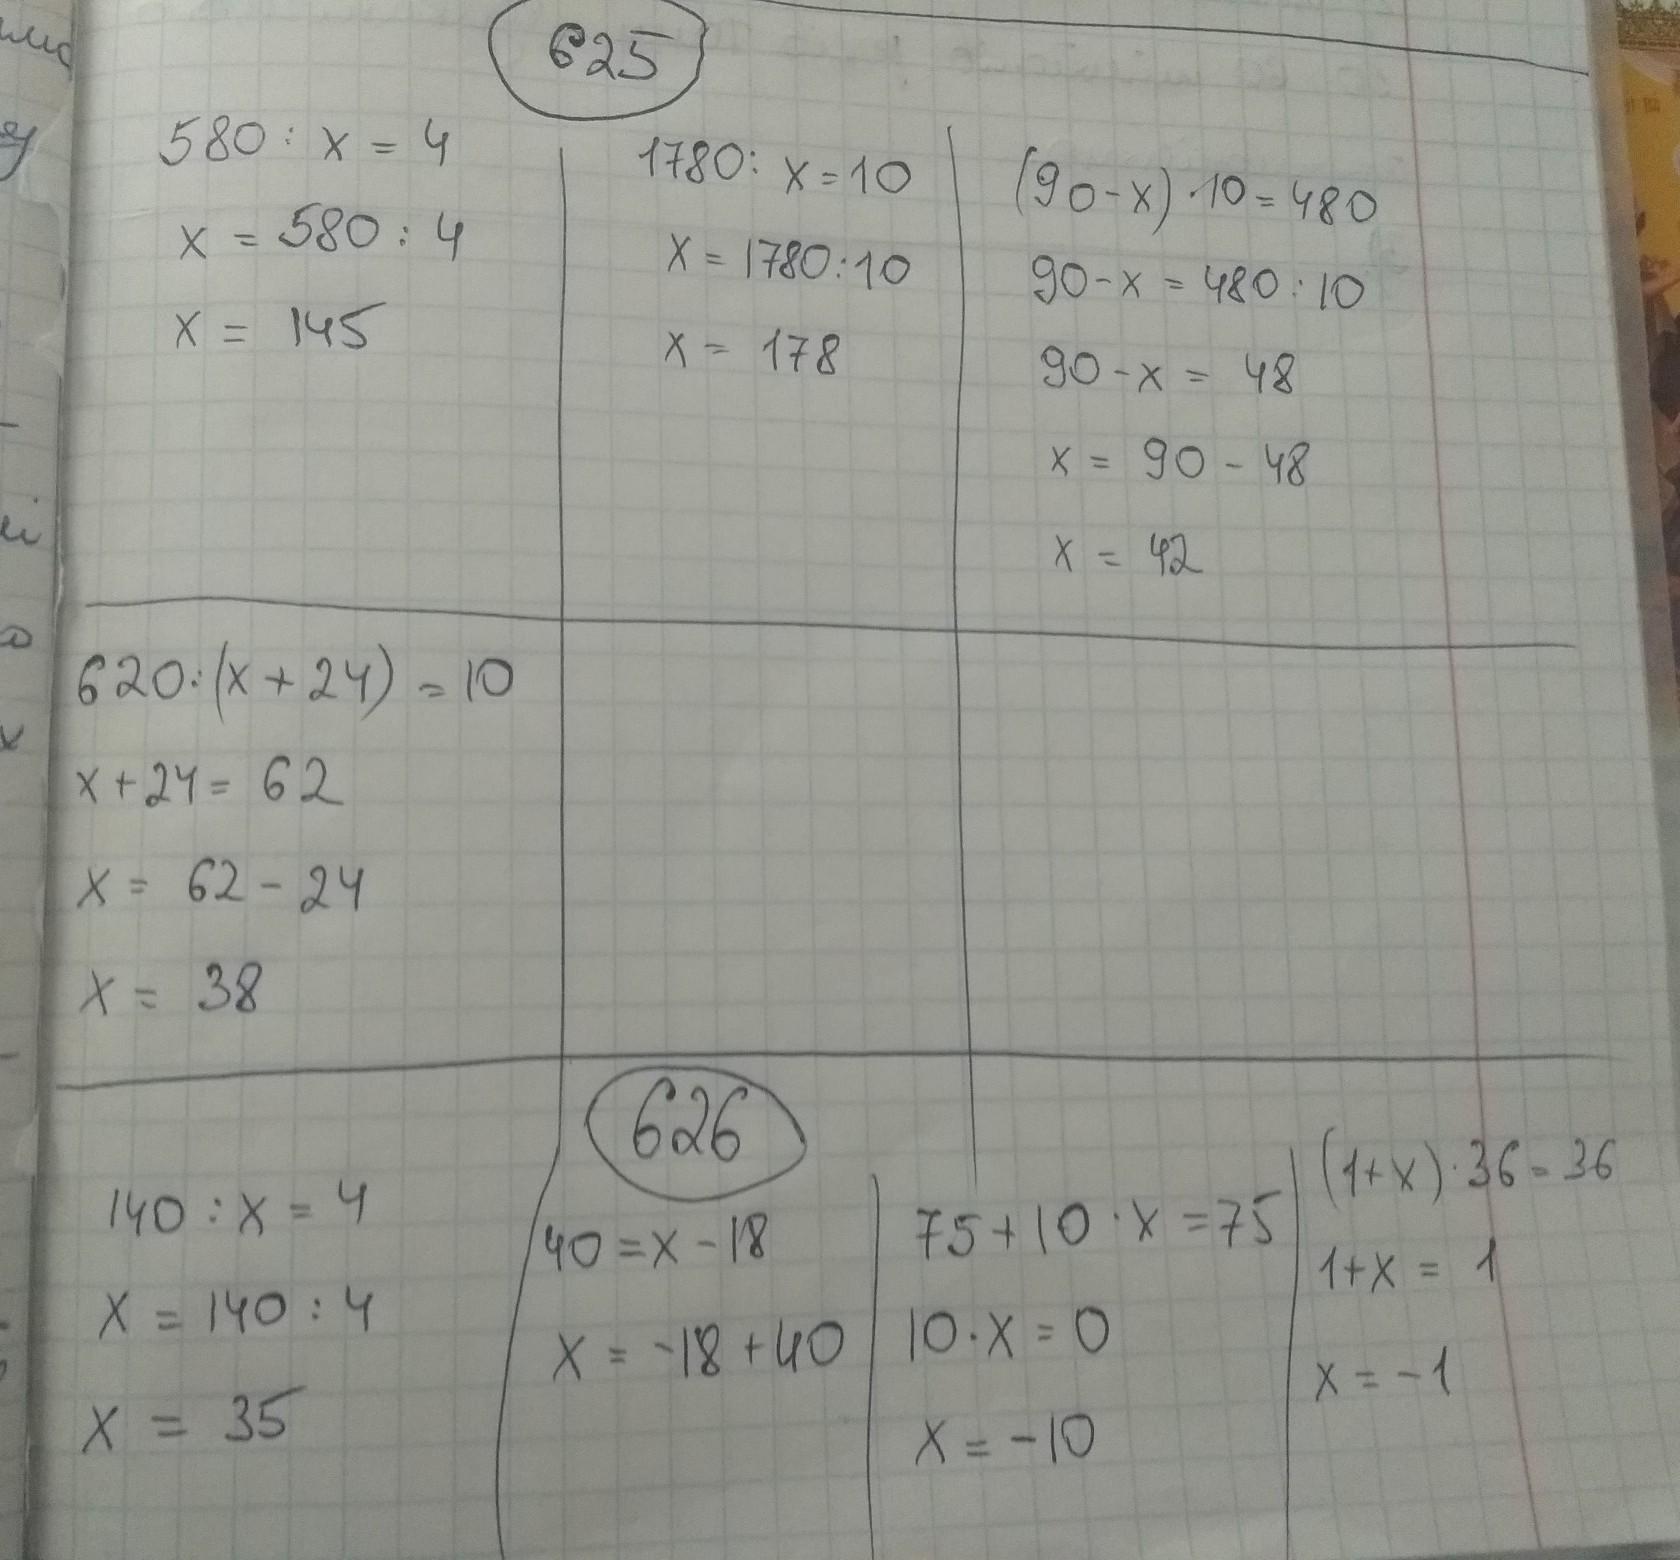 625
580 : x = 4
x = 580 : 4
x = 145
1780 : x = 10
x = 1780 : 10
x = 178
(90 - x) · 10 = 480
90 - x = 480 : 10
90 - x = 48
x = 90 - 48
x = 42
620 : (x + 24) = 10
x + 24 = 62
x = 62 - 24
x = 38
626
140 : x = 4
x = 140 : 4
x = 35
40 = x - 18
x = -18 + 40
75 + 10 · x = 75
10 · x = 0
x = -10
(1 + x) · 36 = 36
1 + x = 1
x = -1